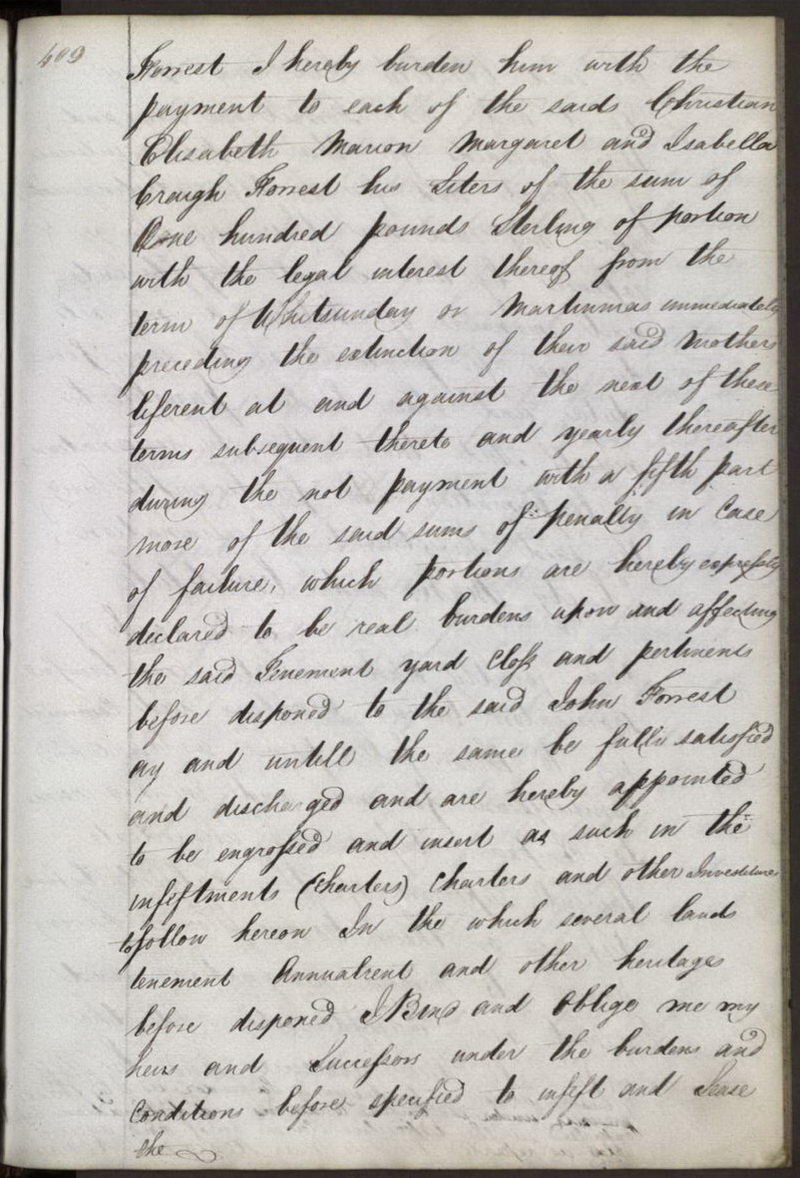 409
Forrest I hereby burden him with the
payment to each of the saids Christian
Elisabeth Marion Margaret and Isabella
Craugh Forrest his Sisters of the sum of
One hundred pounds Sterling of portion
with the legal interest thereof from the
term of Whitsunday or Martinmas immediately
preceding the extinction of their said Mothers
liferent at and against the next of these
terms subsequent thereto and yearly thereafter
during the not payment with a fifth part
more of the said sums of penalty in Case
of failure, which portions are hereby expressly
declared to be real burdens upon and affecting
the said Tenement yard Closs and pertinents
before disponed to the said John Forrest
ay and untill the same be fully satisfied
and discharged and are hereby appointed
to be engrossed and insert as such in the
infeftments (Charters) Charters and other Investitures
to follow hereon In the which several lands
tenement Annualrent and other heritages
before disponed I Bind and Oblige me my
heirs and Successors under the burdens and
Conditions before specified to infeft and Sease
the